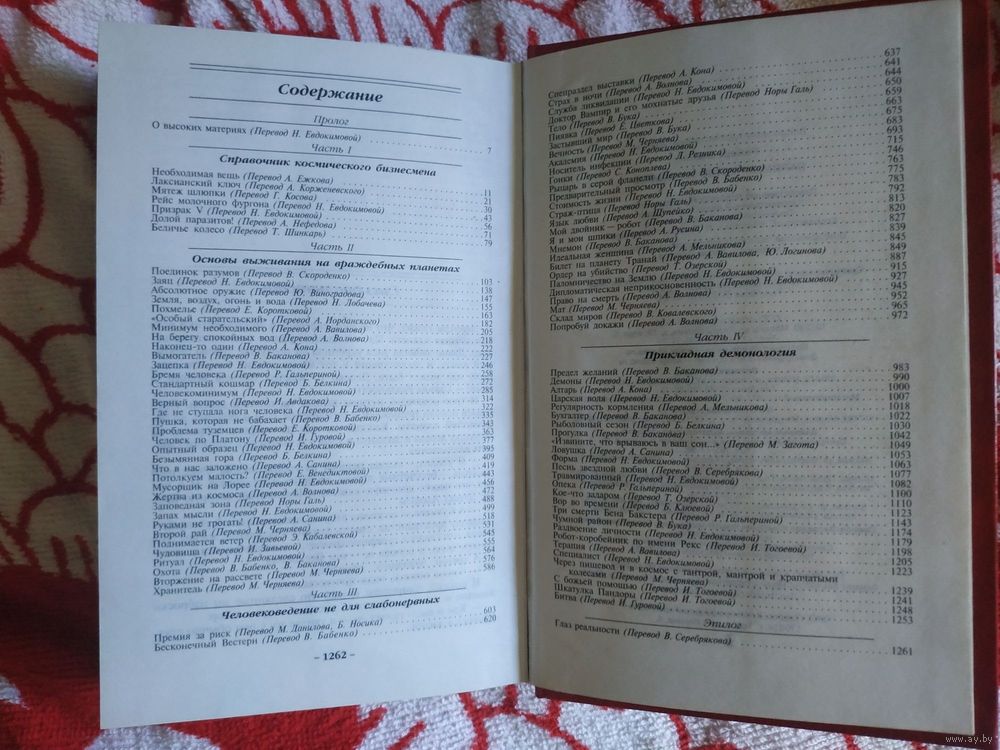 Содержание
Пролог
О высоких материях (Перевод Н. Евдокимовой) 7
Часть I
Справочник космического бизнесмена
Необходимая вещь (Перевод А. Ежкова) 11
Лаксианский ключ (Перевод А. Корженевского) 21
Мятеж шлюпки (Перевод Г. Косова) 30
Рейс молочного фургона (Перевод Н. Евдокимовой) 43
Призрак V (Перевод Н. Евдокимовой) 56
Долой паразитов! (Перевод А. Нефедова) 71
Беличье колесо (Перевод Т. Шинкарь) 79
Часть II
Основы выживания на враждебных планетах
Поединок разумов (Перевод В. Скороденко) 103
Заяц (Перевод Н. Евдокимовой) 138
Абсолютное оружие (Перевод Ю. Виноградова) 147
Земля, воздух, огонь и вода (Перевод Н. Лобачева) 155
Похмелье (Перевод Е. Коротковой) 163
«Особый старательский» (Перевод А. Иорданского) 182
Минимум необходимого (Перевод А. Вавилова) 205
На берегу спокойных вод (Перевод А. Волнова) 218
Наконец-то один (Перевод А. Кона) 222
Вымогатель (Перевод В. Баканова) 227
Зацепка (Перевод Н. Евдокимовой) 246
Бремя человека (Перевод Р. Гальпериной) 258
Стандартный кошмар (Перевод Б. Белкина) 272
Человекоминимум (Перевод Н. Евдокимовой) 285
Верный вопрос (Перевод И. Авдакова) 314
Где не ступала нога человека (Перевод Н. Евдокимовой) 322
Пушка, которая не бабахает (Перевод В. Бабенко) 335
Проблема туземцев (Перевод Е. Коротковой) 343
Человек по Платону (Перевод И. Гуровой) 363
Опытный образец (Перевод Н. Евдокимовой) 377
Безымянная гора (Перевод Б. Белкина) 395
Что в нас заложено (Перевод А. Санина) 409
Потолкуем малость? (Перевод Е. Венедиктовой) 419
Мусорщик на Лорее (Перевод Н. Евдокимовой) 443
Жертва из космоса (Перевод А. Волнова) 456
Заповедная зона (Перевод Норы Галь) 472
Запах мысли (Перевод Н. Евдокимовой) 488
Руками не трогать! (Перевод А. Санина) 499
Второй рай (Перевод М. Черняева) 518
Поднимается ветер (Перевод Э. Кабалевской) 531
Чудовища (Перевод И. Зивьевой) 545
Ритуал (Перевод Н. Евдокимовой) 555
Охота (Перевод В. Бабенко, В. Баканова) 564
Вторжение на рассвете (Перевод М. Черняева) 576
Хранитель (Перевод М. Черняева) 586
Часть III
Человековедение не для слабонервных
Премия за риск (Перевод М. Данилова, Б. Носика) 603
Бесконечный Вестерн (Перевод В. Бабенко) 620
– 1262 –
Спецраздел выставки (Перевод А. Кона) 637
Страх в ночи (Перевод А. Волнова) 641
Служба ликвидации (Перевод Н. Евдокимовой) 644
Доктор Вампир и его мохнатые друзья (Перевод Норы Галь) 650
Тело (Перевод В. Бука) 659
Пиявка (Перевод Е. Цветкова) 663
Застывший мир (Перевод В. Бука) 675
Вечность (Перевод М. Черняева) 683
Академия (Перевод Н. Евдокимовой) 693
Носитель инфекции (Перевод Л. Резника) 715
Гонки (Перевод С. Коноплева) 746
Рыцарь в серой фланели (Перевод В. Скороденко) 763
Предварительный просмотр (Перевод В. Бабенко) 775
Стоимость жизни (Перевод Н. Евдокимовой) 783
Страж-птица (Перевод Норы Галь) 792
Язык любви (Перевод А. Шупейко) 813
Мой двойник – робот (Перевод В. Баканова) 820
Я и мои шпики (Перевод А. Русина) 827
Мнемон (Перевод В. Баканова) 839
Идеальная женщина (Перевод А. Мельникова) 845
Билет на планету Транай (Перевод А. Вавилова, Ю. Логинова) 849
Ордер на убийство (Перевод Т. Озерской) 887
Паломничество на Землю (Перевод Н. Евдокимовой) 915
Дипломатическая неприкосновенность (Перевод Н. Евдокимовой) 927
Право на смерть (Перевод А. Волнова) 945
Мат (Перевод М. Черняева) 952
Склад миров (Перевод В. Ковалевского) 965
Попробуй докажи (Перевод А. Волнова) 972
Часть IV
Прикладная демонология
Предел желаний (Перевод В. Баканова) 983
Демоны (Перевод Н. Евдокимовой) 990
Алтарь (Перевод А. Кона) 1000
Царская воля (Перевод Н. Евдокимовой) 1007
Регулярность кормления (Перевод А. Мельникова) 1018
Бухгалтер (Перевод В. Баканова) 1022
Рыболовный сезон (Перевод Б. Белкина) 1030
Прогулка (Перевод В. Баканова) 1042
«Извините, что врываюсь в ваш сон...» (Перевод М. Загота) 1049
Ловушка (Перевод А. Санина) 1053
Форма (Перевод Н. Евдокимовой) 1063
Песнь звездной любви (Перевод В. Серебрякова) 1077
Травмированный (Перевод Н. Евдокимовой) 1082
Опека (Перевод Р. Гальпериной) 1100
Кое-что задаром (Перевод Т. Озерской) 1110
Вор во времени (Перевод Б. Клюевой) 1123
Три смерти Бена Бакстера (Перевод Р. Гальпериной) 1143
Чумной район (Перевод В. Бука) 1174
Раздвоение личности (Перевод Н. Евдокимовой) 1179
Робот-коробейник по имени Рекс (Перевод И. Тогоевой) 1198
Терапия (Перевод А. Вавилова) 1205
Специалист (Перевод Н. Евдокимовой) 1223
Через пищевод и в космос с тантрой, мантрой и крапчатыми
колесами (Перевод М. Черняева) 1239
С божьей помощью (Перевод И. Тогоевой) 1241
Шкатулка Пандоры (Перевод И. Тогоевой) 1248
Битва (Перевод И. Гуровой) 1253
Эпилог
Глаз реальности (Перевод В. Серебрякова) 1261
www.ay.by